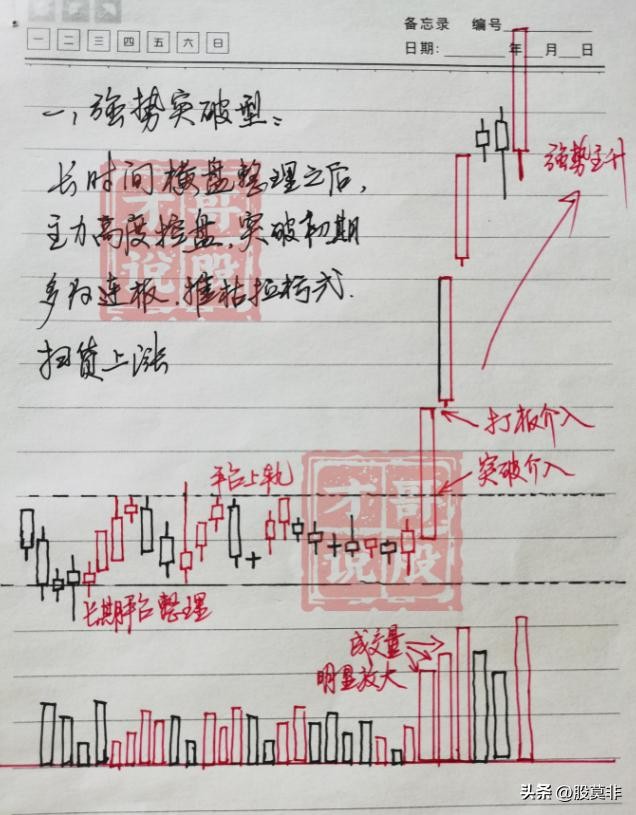 备忘录 编号
一 二 三 四 五 六 日
日期: 年 月 日
一、强势突破型：
长时间横盘整理之后，
主力高度控盘，突破初期
多为连板、摧枯拉朽式
扫货上涨
才哥
说股
强势主升
打板介入
突破介入
平台上轨
才哥
说股
长期平台整理
成交量
明显放大
头条 @股莫非